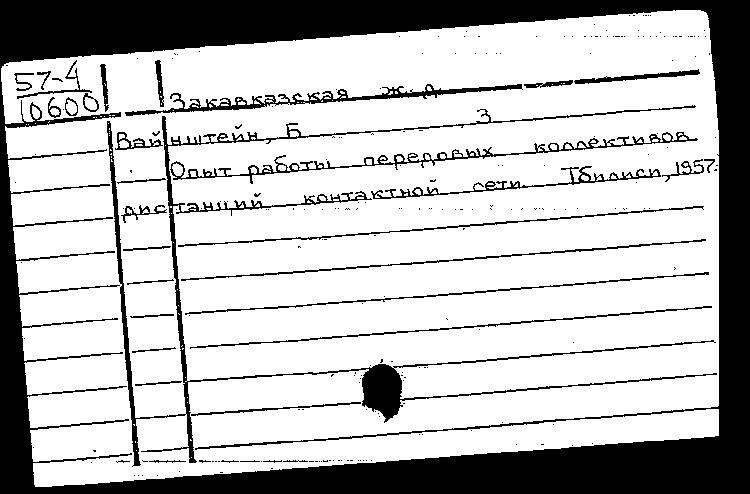 57-4
10600
Закавказская ж. д.
Вайнштейн, Б. З
Опыт работы передовых коллективов
дистанций контактной сети. Тбилиси, 1957.